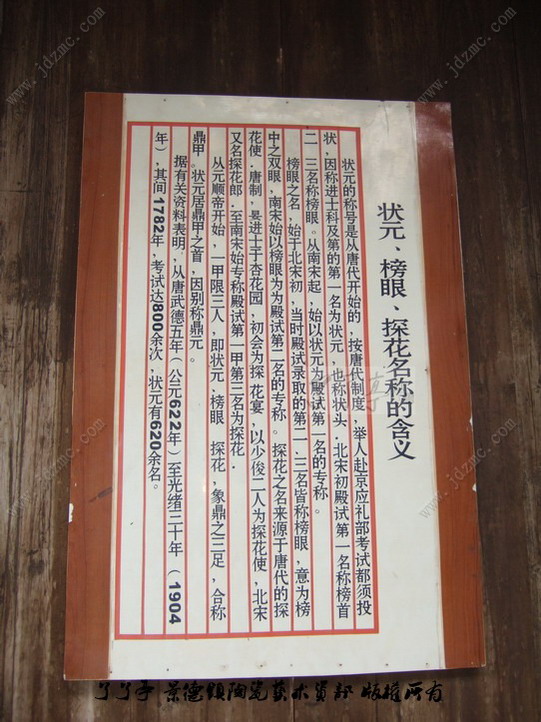 状元、榜眼、探花名称的含义
状元的称号是从唐代开始的，按唐代制度，举人赴京应礼部考试都须投
状，因称进士科及第的第一名为状元，也称状头．北宋初殿试第一名称榜首
二、三名称榜眼。从南宋起，始以状元为殿试第一名的专称。
榜眼之名，始于北宋初，当时殿试录取的第二、三名皆称榜眼，意为榜
中之双眼，南宋始以榜眼为为殿试第二名的专称。探花之名来源于唐代的探
花使．唐制，景进士于杏花园，初会为探花宴，以少俊二人为探花使，北宋
又名探花郎．至南宋始专称殿试第一甲第三名为探花．
从元顺帝开始，一甲限三人，即状元、榜眼 探花，象鼎之三足，合称
鼎甲。状元居鼎甲之首，因别称鼎元。
据有关资料表明，从唐武德五年（公元622年）至光绪三十年（1904
年），其间1782年，考试达800余次，状元有620余名。
www.jdzmc.com
www.jdzmc.com
www.jdzmc.com
www.jdzmc.com
景德镇陶瓷艺术资部 版权所有